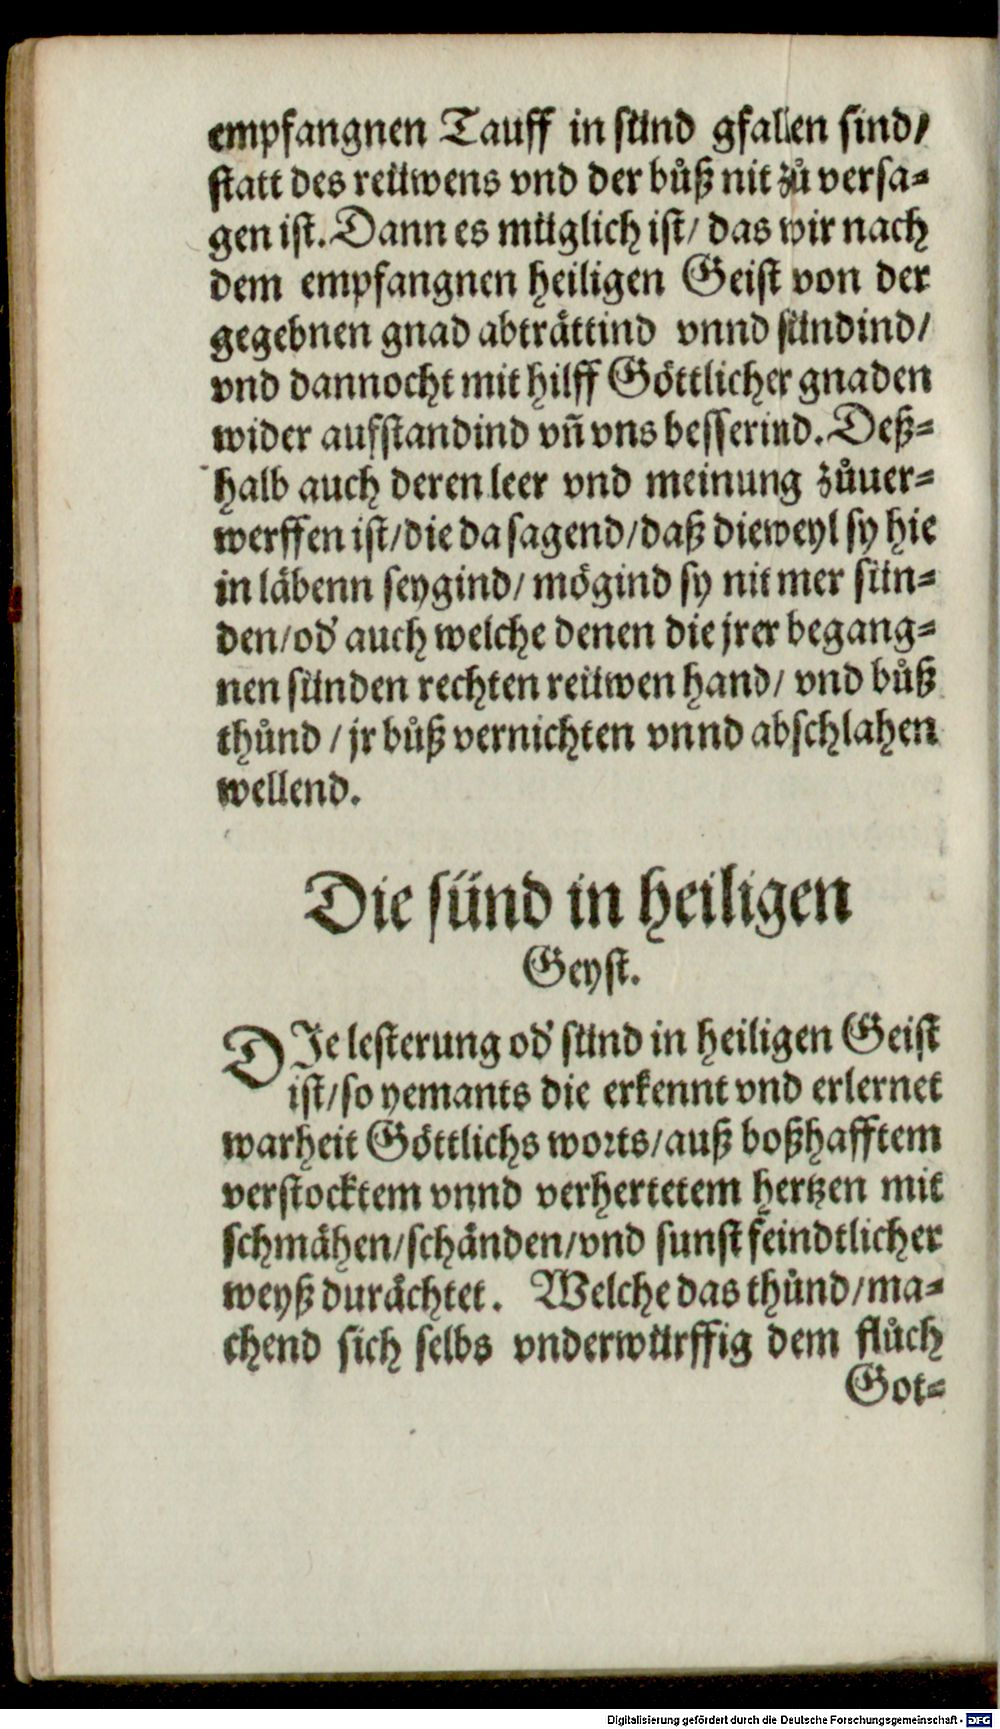 empfangnen Tauff in sünd gfallen sind/
statt des reüwens vnd der bůß nit zů versa⸗
gen ist. Dann es müglich ist/ das wir nach
dem empfangnen heiligen Geist von der
gegebnen gnad abträttind vnnd sündind/
vnd dannocht mit hilff Göttlicher gnaden
wider aufstandind vñ vns besserind. Deß⸗
halb auch deren leer vnd meinung zůuer⸗
werffen ist/ die da sagend/ daß dieweyl sy hie
in läbenn seygind/ mögind sy nit mer sün⸗
den/ od' auch welche denen die jrer begang⸗
nen sünden rechten reüwen hand/ vnd bůß
thůnd / jr bůß vernichten vnnd abschlahen
wellend.
Die sünd in heiligen
Geyst.
DJe lesterung od' sünd in heiligen Geist
ist/ so yemants die erkennt vnd erlernet
warheit Göttlichs worts/ auß boßhafftem
verstocktem vnnd verhertetem hertzen mit
schmähen/ schänden/ vnd sunst feindtlicher
weyß durächtet. Welche das thůnd/ ma⸗
chend sich selbs vnderwürffig dem flůch
Got⸗
Digitalisierung gefördert durch die Deutsche Forschungsgemeinschaft - DFG